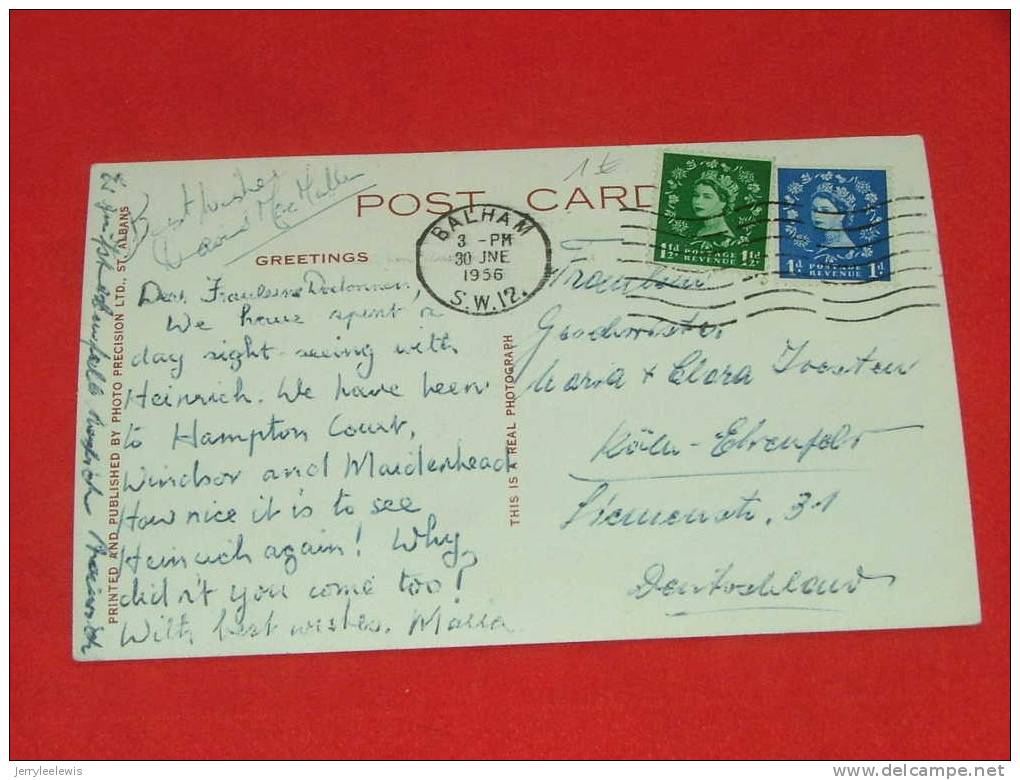 Best wishes
David MacMillan
POST CARD
GREETINGS
1 €
BALHAM
3 - PM
30 JNE
1956
S.W.12.
1½d POSTAGE REVENUE 1½d
1d POSTAGE REVENUE 1d
Dear Fraulein
We have spent a
day sight-seeing with
Heinrich. We have been
to Hampton Court,
Windsor and Maidenhead
How nice it is to see
Heinrich again! Why
didn't you come too?
With best wishes,
PRINTED AND PUBLISHED BY PHOTO PRECISION LTD., ST. ALBANS
Heinrich
THIS IS A REAL PHOTOGRAPH
Fräulein
Geschwister
Maria + Clara
Köln-Ehrenfeld
31
Deutschland
jerryleelewis
delcampe.net